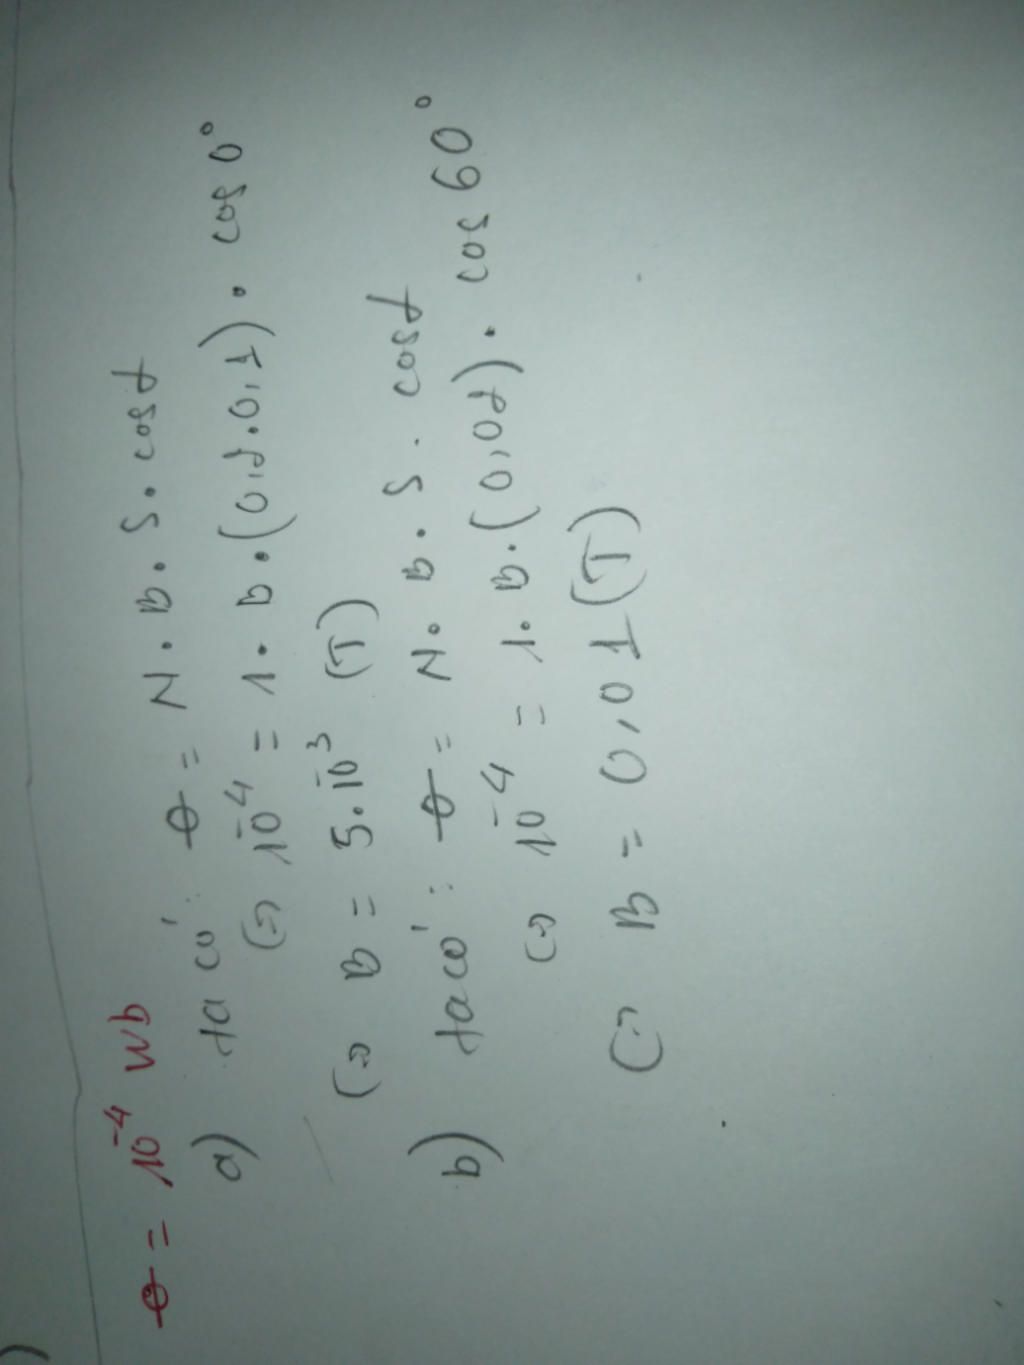 Φ = 10⁻⁴ Wb
a) ta có: Φ = N.B.S.cosα
(=) 10⁻⁴ = 1.B.(0,2.0,1).cos 0°
(=) B = 5.10⁻³ (T)
b) ta có: Φ = N.B.S.cosα
(=) 10⁻⁴ = 1.B.(0,02).cos 60°
(=) B = 0,01 (T)